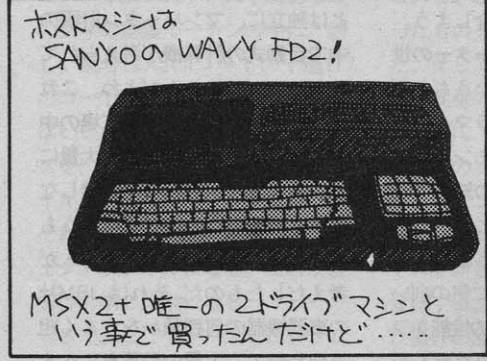 ホストマシンは
SANYOの WAVY FD2!
MSX2+ 唯一の 2ドライブマシンと
いう事で買ったんだけど……